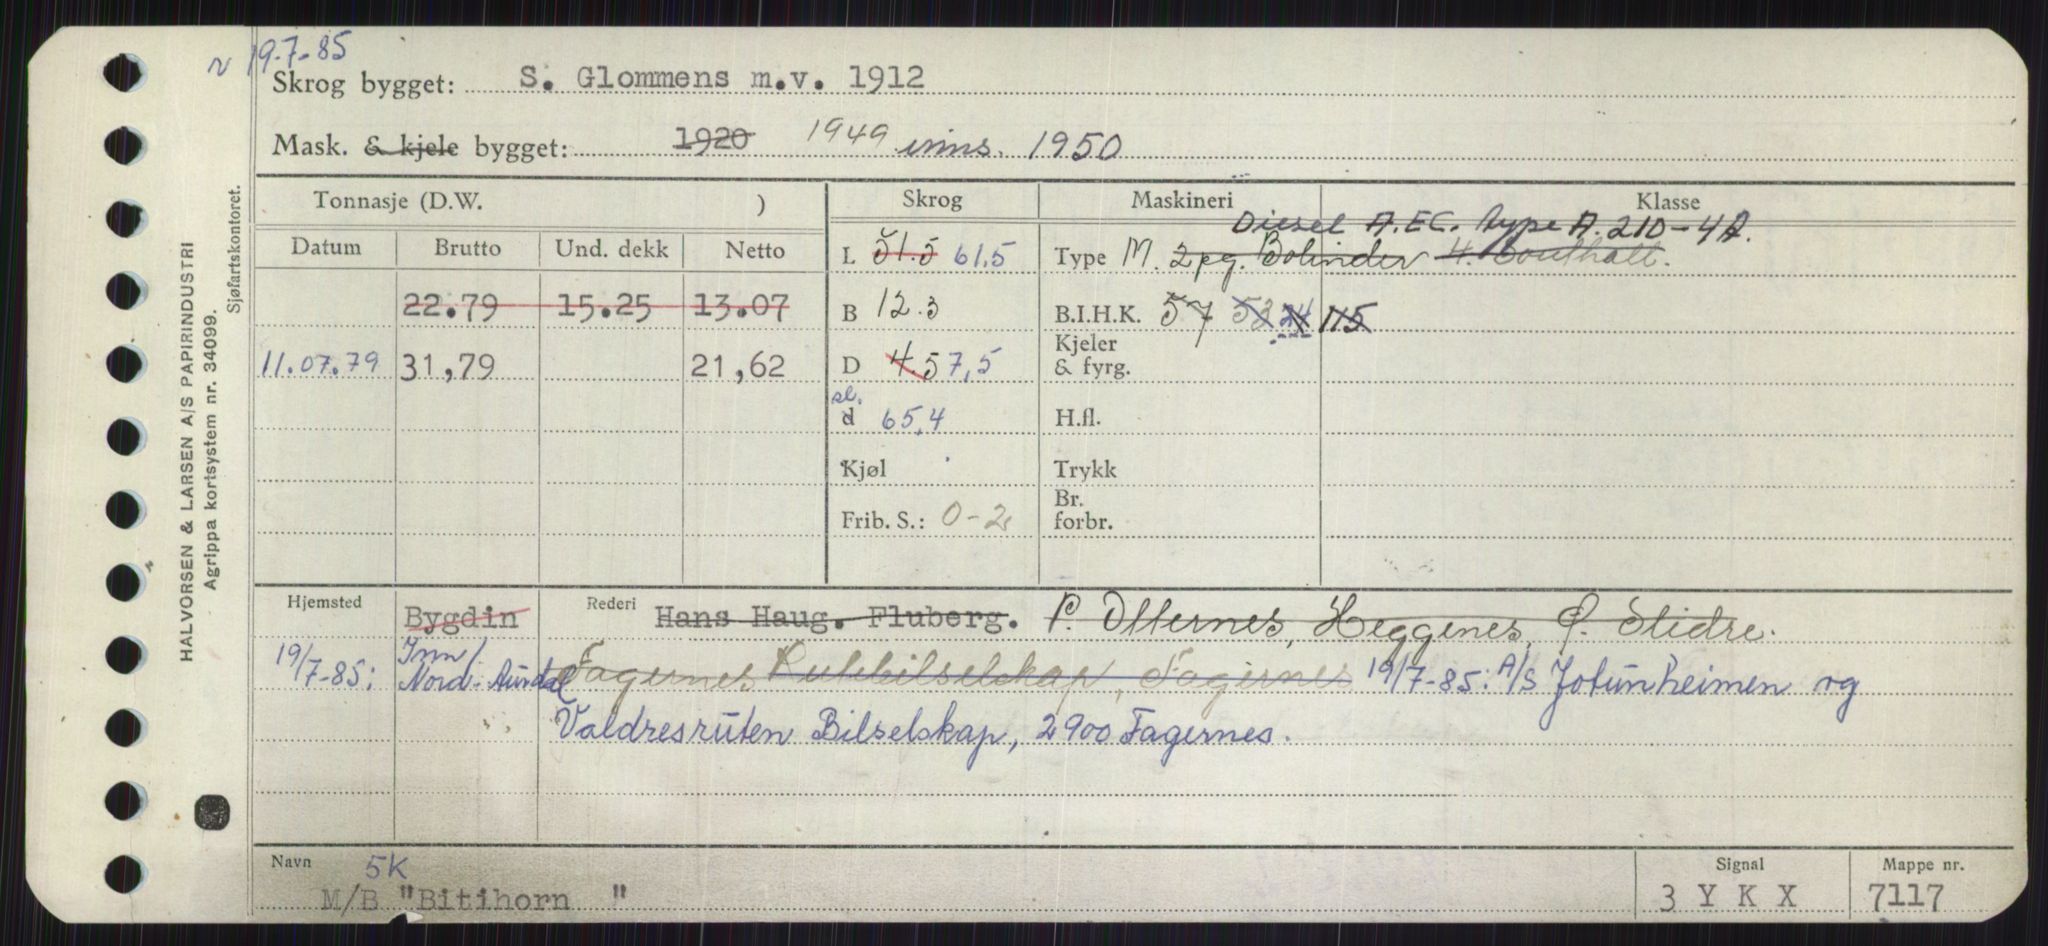 N 19.7-85
Skrog bygget: S. Glommens m.v. 1912
Mask. & kjele bygget: 1920 1949 inns. 1950
Tonnasje (D.W. ) Skrog Maskineri Klasse
Diesel A.E.C. type A. 210-4A.
Datum Brutto Und. dekk Netto L 51.5 61.5 Type M. 2 pg. Bolinder
22.79 15.25 13.07 B 12.3 B.I.H.K. 57 53 24 115
11.07.79 31,79 21,62 D 4.5 7,5 Kjeler & fyrg.
sl.
d 65,4 H.fl.
Kjøl Trykk
Frib. S.: 0-2 Br. forbr.
Hjemsted Bygdin Rederi Hans Haug. Fluberg. P. Ollernes, Heggenes, Ø. Slidre.
19/7-85: Inn/ Nord-Aurdal Fagernes Rutebilselskap, Fagernes 19/7-85: A/S Jotunheimen og
Valdresruten Bilselskap, 2900 Fagernes.
Navn 5K Signal Mappe nr.
M/B "Bitihorn " 3 Y K X 7117
HALVORSEN & LARSEN A/S PAPIRINDUSTRI
Agrippa kortsystem nr. 34099.
Sjøfartskontoret.